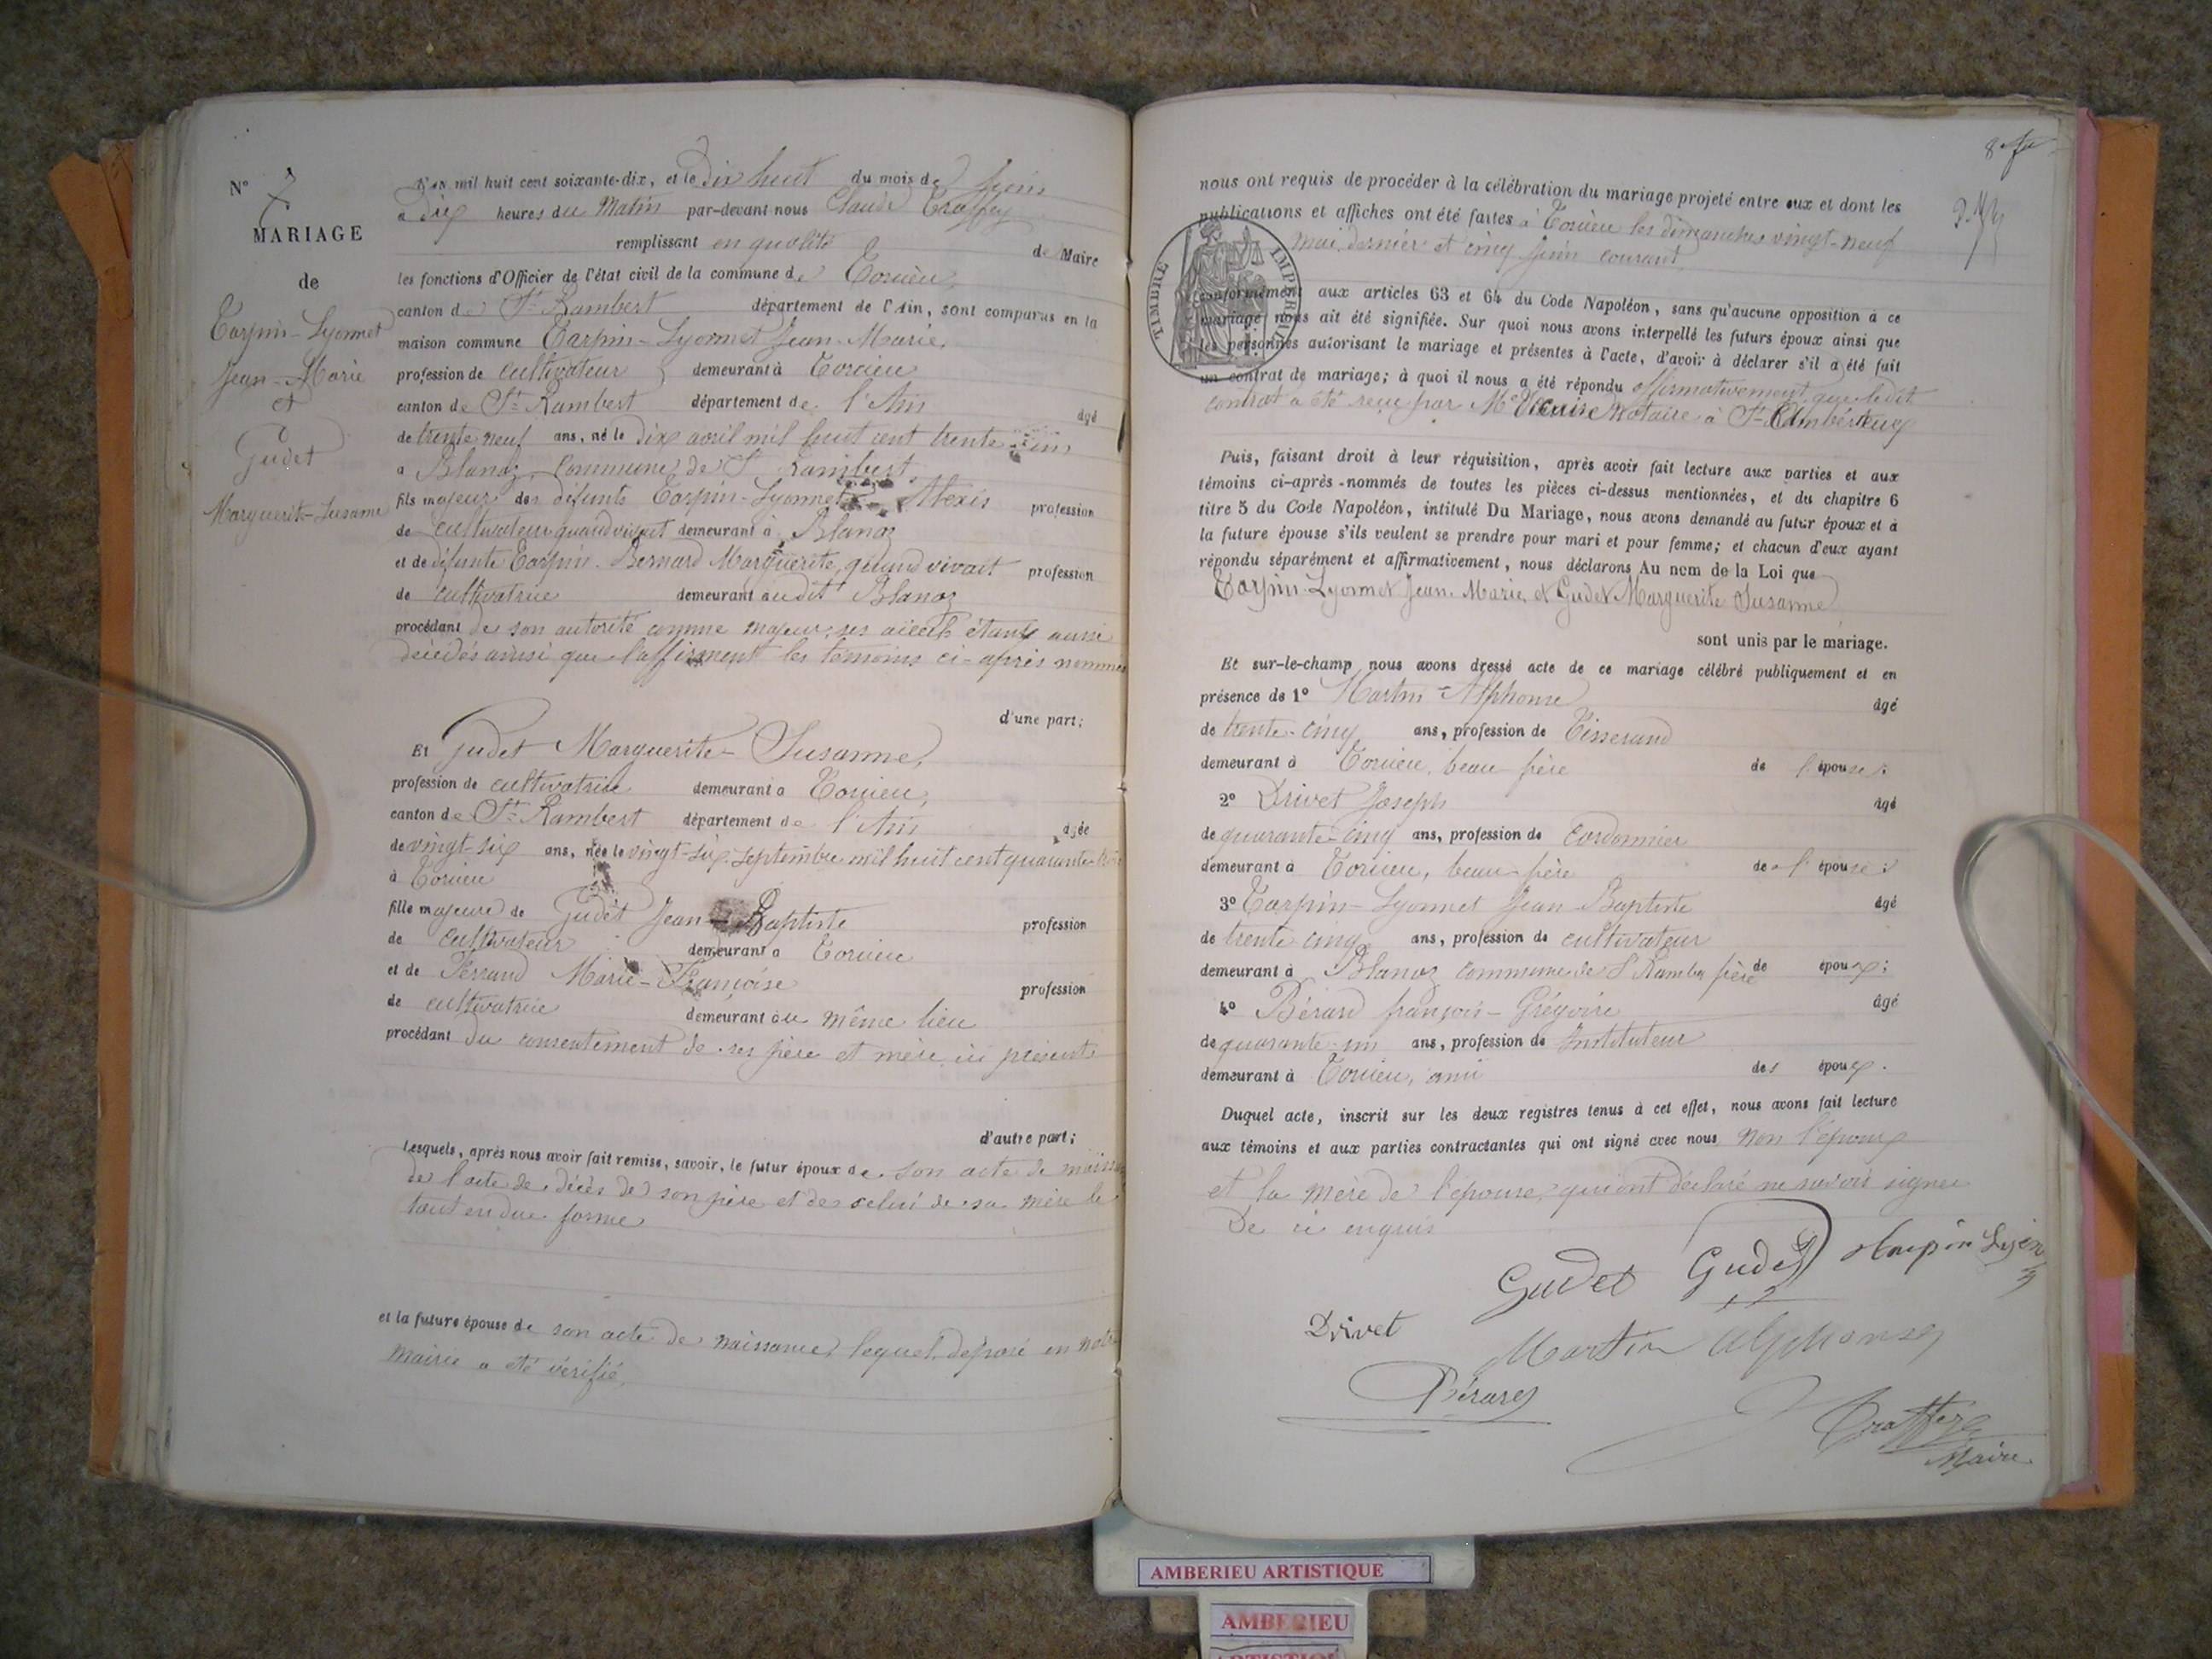 N° 7
MARIAGE
de
Tarpin-Lyonnet
Jean-Marie
et
Gudet
Marguerite-Susanne
L'an mil huit cent soixante-dix, et le dix huit du mois de Juin
à dix heures du Matin par-devant nous Claude
remplissant en qualité de Maire
les fonctions d'Officier de l'état civil de la commune de Torcieu,
canton de St Rambert département de l'Ain, sont comparus en la
maison commune Tarpin-Lyonnet Jean-Marie,
profession de cultivateur demeurant à Torcieu
canton de St Rambert département de l'Ain âgé
de trente neuf ans, né le dix avril mil huit cent trente-un
à Blanaz, commune de St Rambert,
fils majeur des défunts Tarpin-Lyonnet Alexis profession
de cultivateur quand vivait demeurant à Blanaz
et de défunte Tarpin-Bernard Marguerite, quand vivait profession
de cultivatrice demeurant audit Blanaz
procédant de son autorité comme majeur, ses aïeuls étant aussi
décédés ainsi que l'affirment les témoins ci-après nommés
d'une part;
Et Gudet Marguerite-Susanne,
profession de cultivatrice demeurant à Torcieu,
canton de St Rambert département de l'Ain âgée
de vingt-six ans, née le vingt-six septembre mil huit cent quarante-trois
à Torcieu
fille majeure de Gudet Jean-Baptiste profession
de cultivateur demeurant à Torcieu
et de Ferrand Marie-Françoise profession
de cultivatrice demeurant au même lieu
procédant du consentement de ses père et mère ici présents
d'autre part;
Lesquels, après nous avoir fait remise, savoir, le futur époux de son acte de naissance
de l'acte de décès de son père et de celui de sa mère le
tout en due forme
et la future épouse de son acte de naissance, lequel déposé en notre
mairie a été vérifié,
8
nous ont requis de procéder à la célébration du mariage projeté entre eux et dont les
publications et affiches ont été faites à Torcieu les dimanches vingt-neuf
mai dernier et cinq juin courant
TIMBRE IMPERIAL
conformément aux articles 63 et 64 du Code Napoléon, sans qu'aucune opposition à ce
mariage nous ait été signifiée. Sur quoi nous avons interpellé les futurs époux ainsi que
les personnes autorisant le mariage et présentes à l'acte, d'avoir à déclarer s'il a été fait
un contrat de mariage; à quoi il nous a été répondu affirmativement que ledit
contrat a été reçu par Me Notaire à St Rambert
Puis, faisant droit à leur réquisition, après avoir fait lecture aux parties et aux
témoins ci-après-nommés de toutes les pièces ci-dessus mentionnées, et du chapitre 6
titre 5 du Code Napoléon, intitulé Du Mariage, nous avons demandé au futur époux et à
la future épouse s'ils veulent se prendre pour mari et pour femme; et chacun d'eux ayant
répondu séparément et affirmativement, nous déclarons Au nom de la Loi que
Tarpin-Lyonnet Jean-Marie et Gudet Marguerite Susanne
sont unis par le mariage.
Et sur-le-champ nous avons dressé acte de ce mariage célébré publiquement et en
présence de 1° Martin-Alphonse âgé
de trente-cinq ans, profession de Tisserand
demeurant à Torcieu, beau frère de l'épouse;
2° Drivet Joseph âgé
de quarante-cinq ans, profession de Cordonnier
demeurant à Torcieu, beau-frère de l'épouse;
3° Tarpin-Lyonnet Jean-Baptiste âgé
de trente cinq ans, profession de cultivateur
demeurant à Blanaz commune de St Rambt frère de époux;
4° Bérard françois-Grégoire âgé
de quarante-un ans, profession de Instituteur
demeurant à Torcieu, ami des époux.
Duquel acte, inscrit sur les deux registres tenus à cet effet, nous avons fait lecture
aux témoins et aux parties contractantes qui ont signé avec nous non l'époux
et la mère de l'épouse, qui ont déclaré ne savoir signer
De ce enquis
Gudet Gudet
Drivet
Martin Alphonse
Bérard
Maire
AMBERIEU ARTISTIQUE
AMBERIEU
ARTISTIQUE